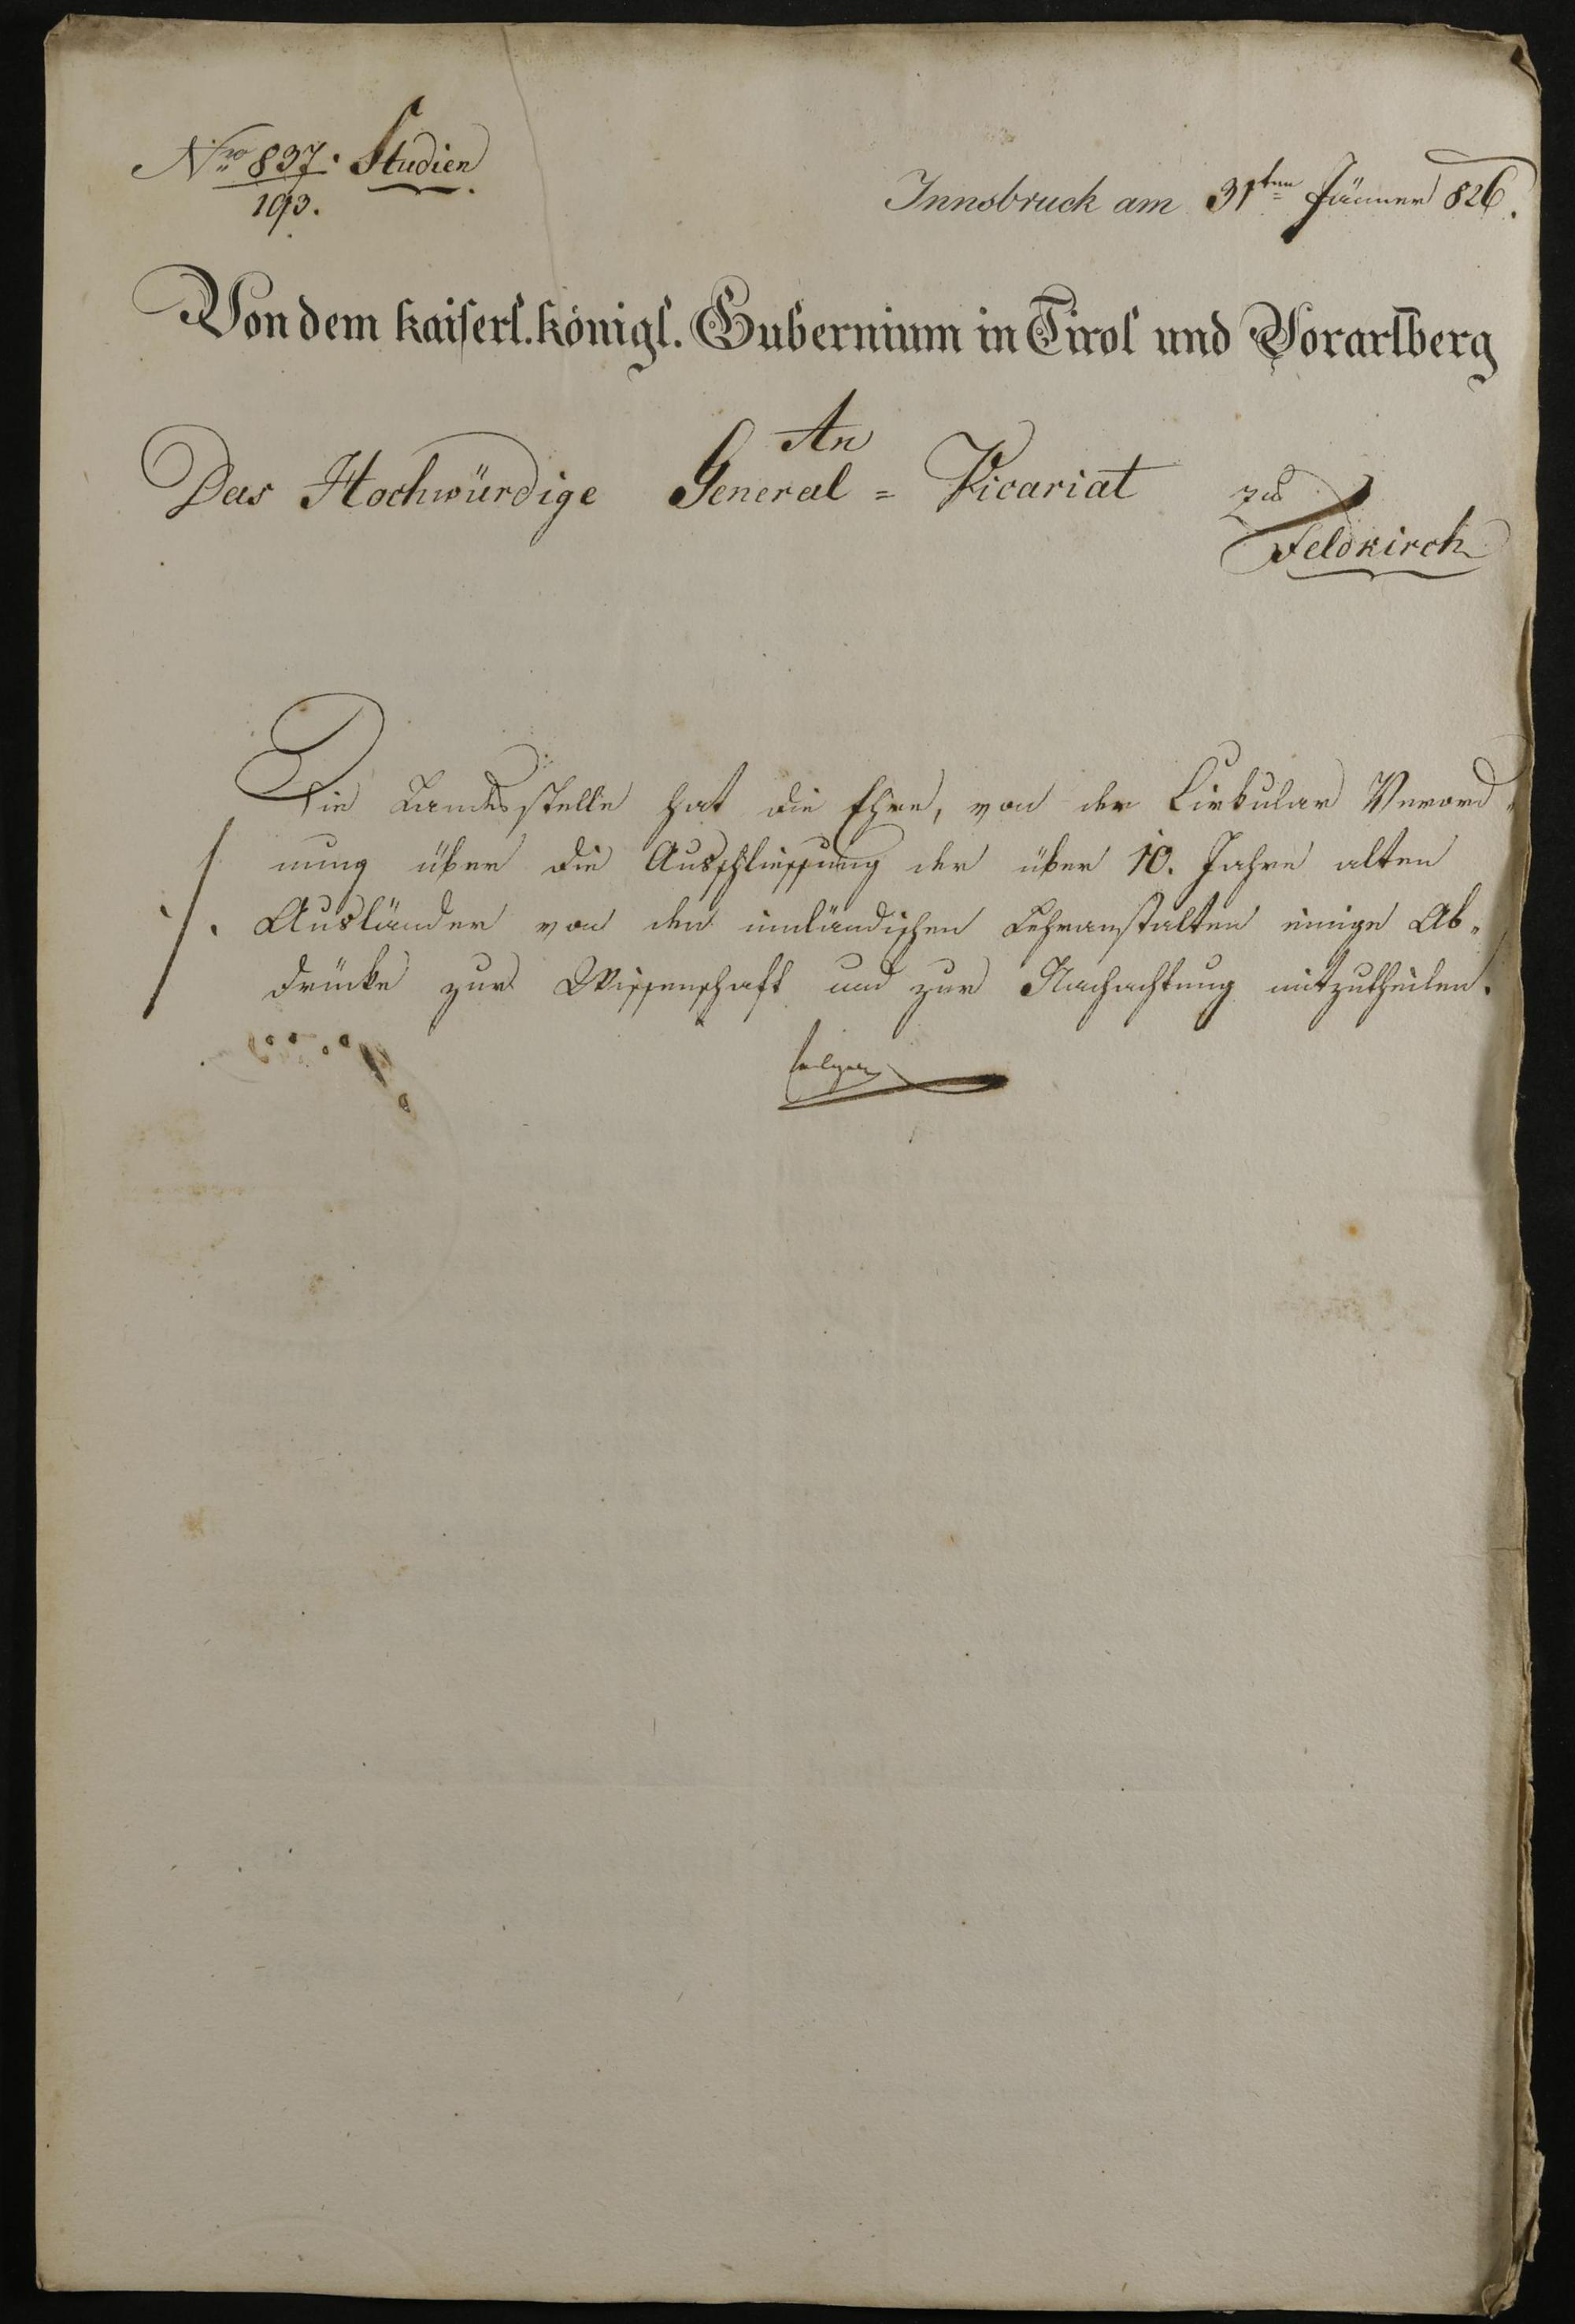 Nro 837. Studien
193.
Innsbruck am 31ten Jänner 826.
Von dem kaiserl. königl. Gubernium in Tirol und Vorarlberg
An
Das Hochwürdige General = Vicariat zu
Feldkirch
Die Landesstelle hat die Ehre, von der Cirkular Verord„
nung über die Ausschliessung der über 10. Jahre alten
./. Ausländer von den inländischen Lehranstalten einige Ab„
drücke zur Wissenschaft und zur Nachachtung mitzutheilen.